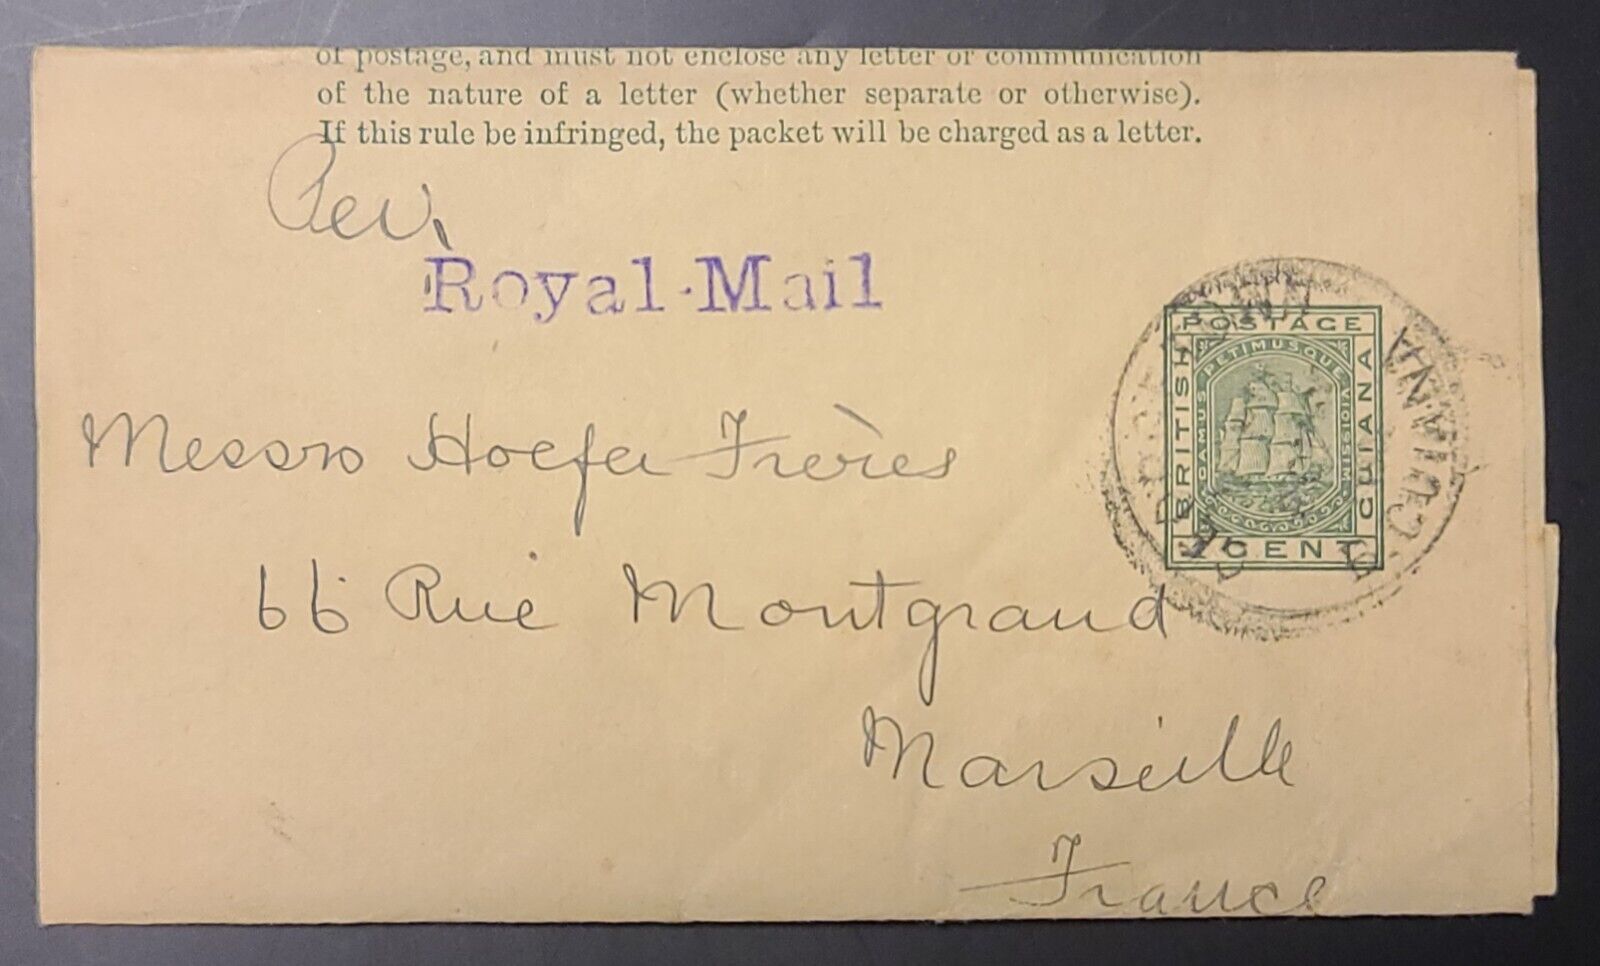 of postage, and must not enclose any letter or communication
of the nature of a letter (whether separate or otherwise).
If this rule be infringed, the packet will be charged as a letter.
Per
Royal·Mail
POSTAGE
BRITISH
GUIANA
DAMUS PETIMUSQUE VICISSIM
1 CENT
GUIANA
Messrs Hoefer Frères
66 Rue Montgrand
Marseille
France